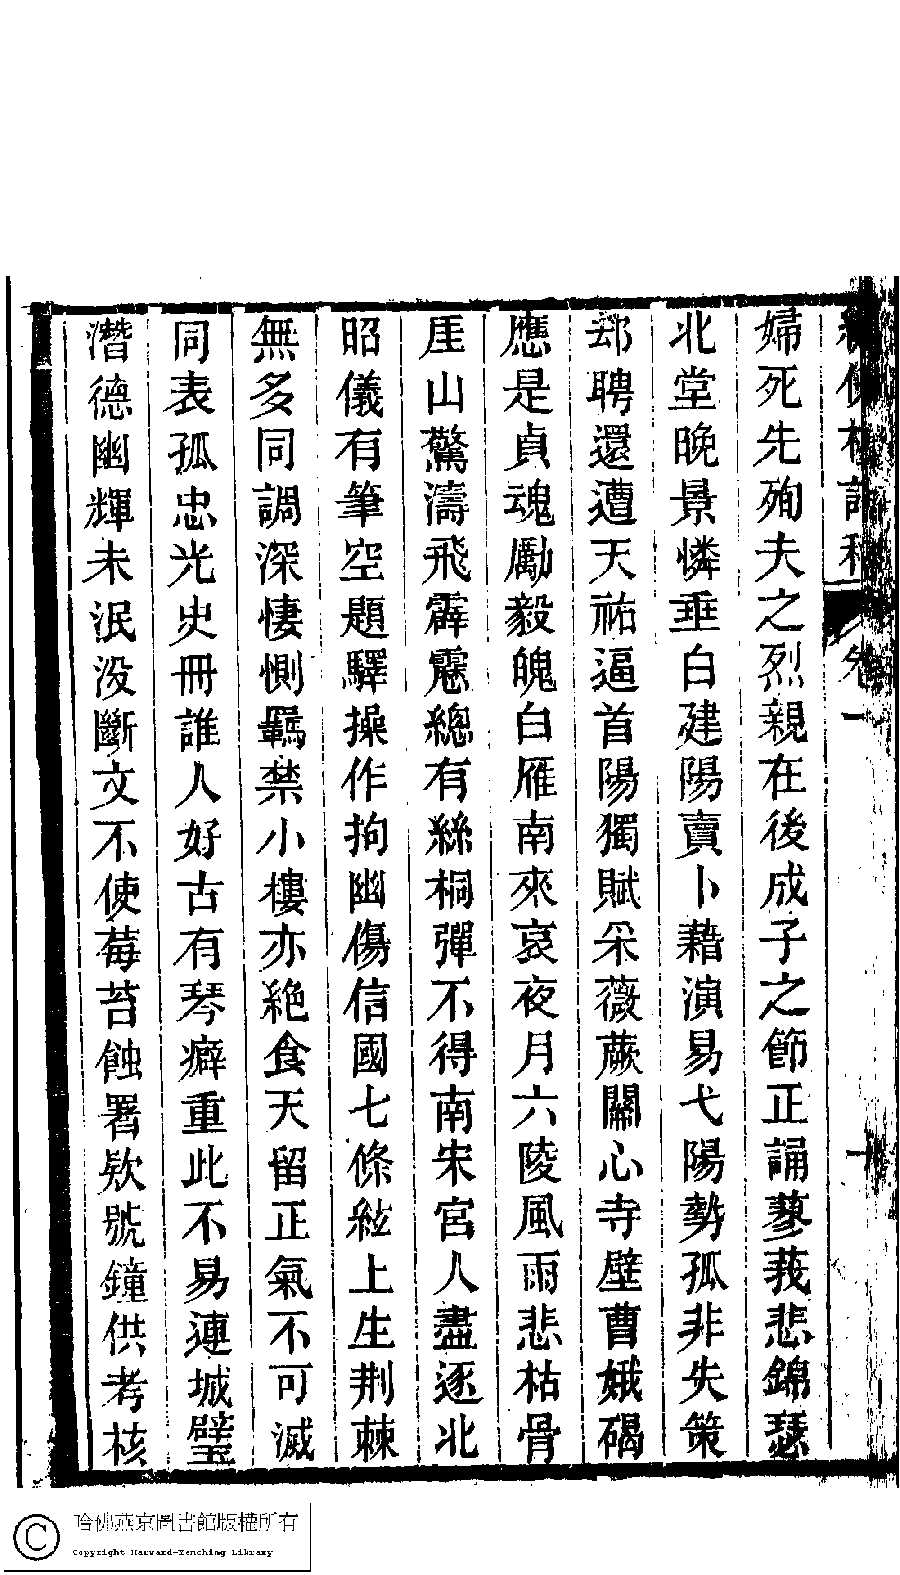 婦死先殉夫之烈親在後成子之節正誦蓼莪悲錦瑟
北堂晩景憐垂白建陽賣卜藉演易弋陽勢孤非失策
却聘還遭天祐逼首陽獨賦采薇蕨關心寺壁曹娥碣
應是貞魂勵毅魄白雁南來哀夜月六陵風雨悲枯骨
厓山驚濤飛霹靂總有絲桐彈不得南宋宮人盡逐北
昭儀有筆空題驛操作拘幽傷信國七條絃上生荆棘
無多同調深悽惻羈禁小樓亦絶食天留正氣不可滅
同表孤忠光史冊誰人好古有琴癖重此不易連城璧
潛德幽輝未泯没斷文不使莓苔蝕署欵號鐘供考核
哈佛燕京圖書館版權所有
Copyright Harvard-Yenching Library